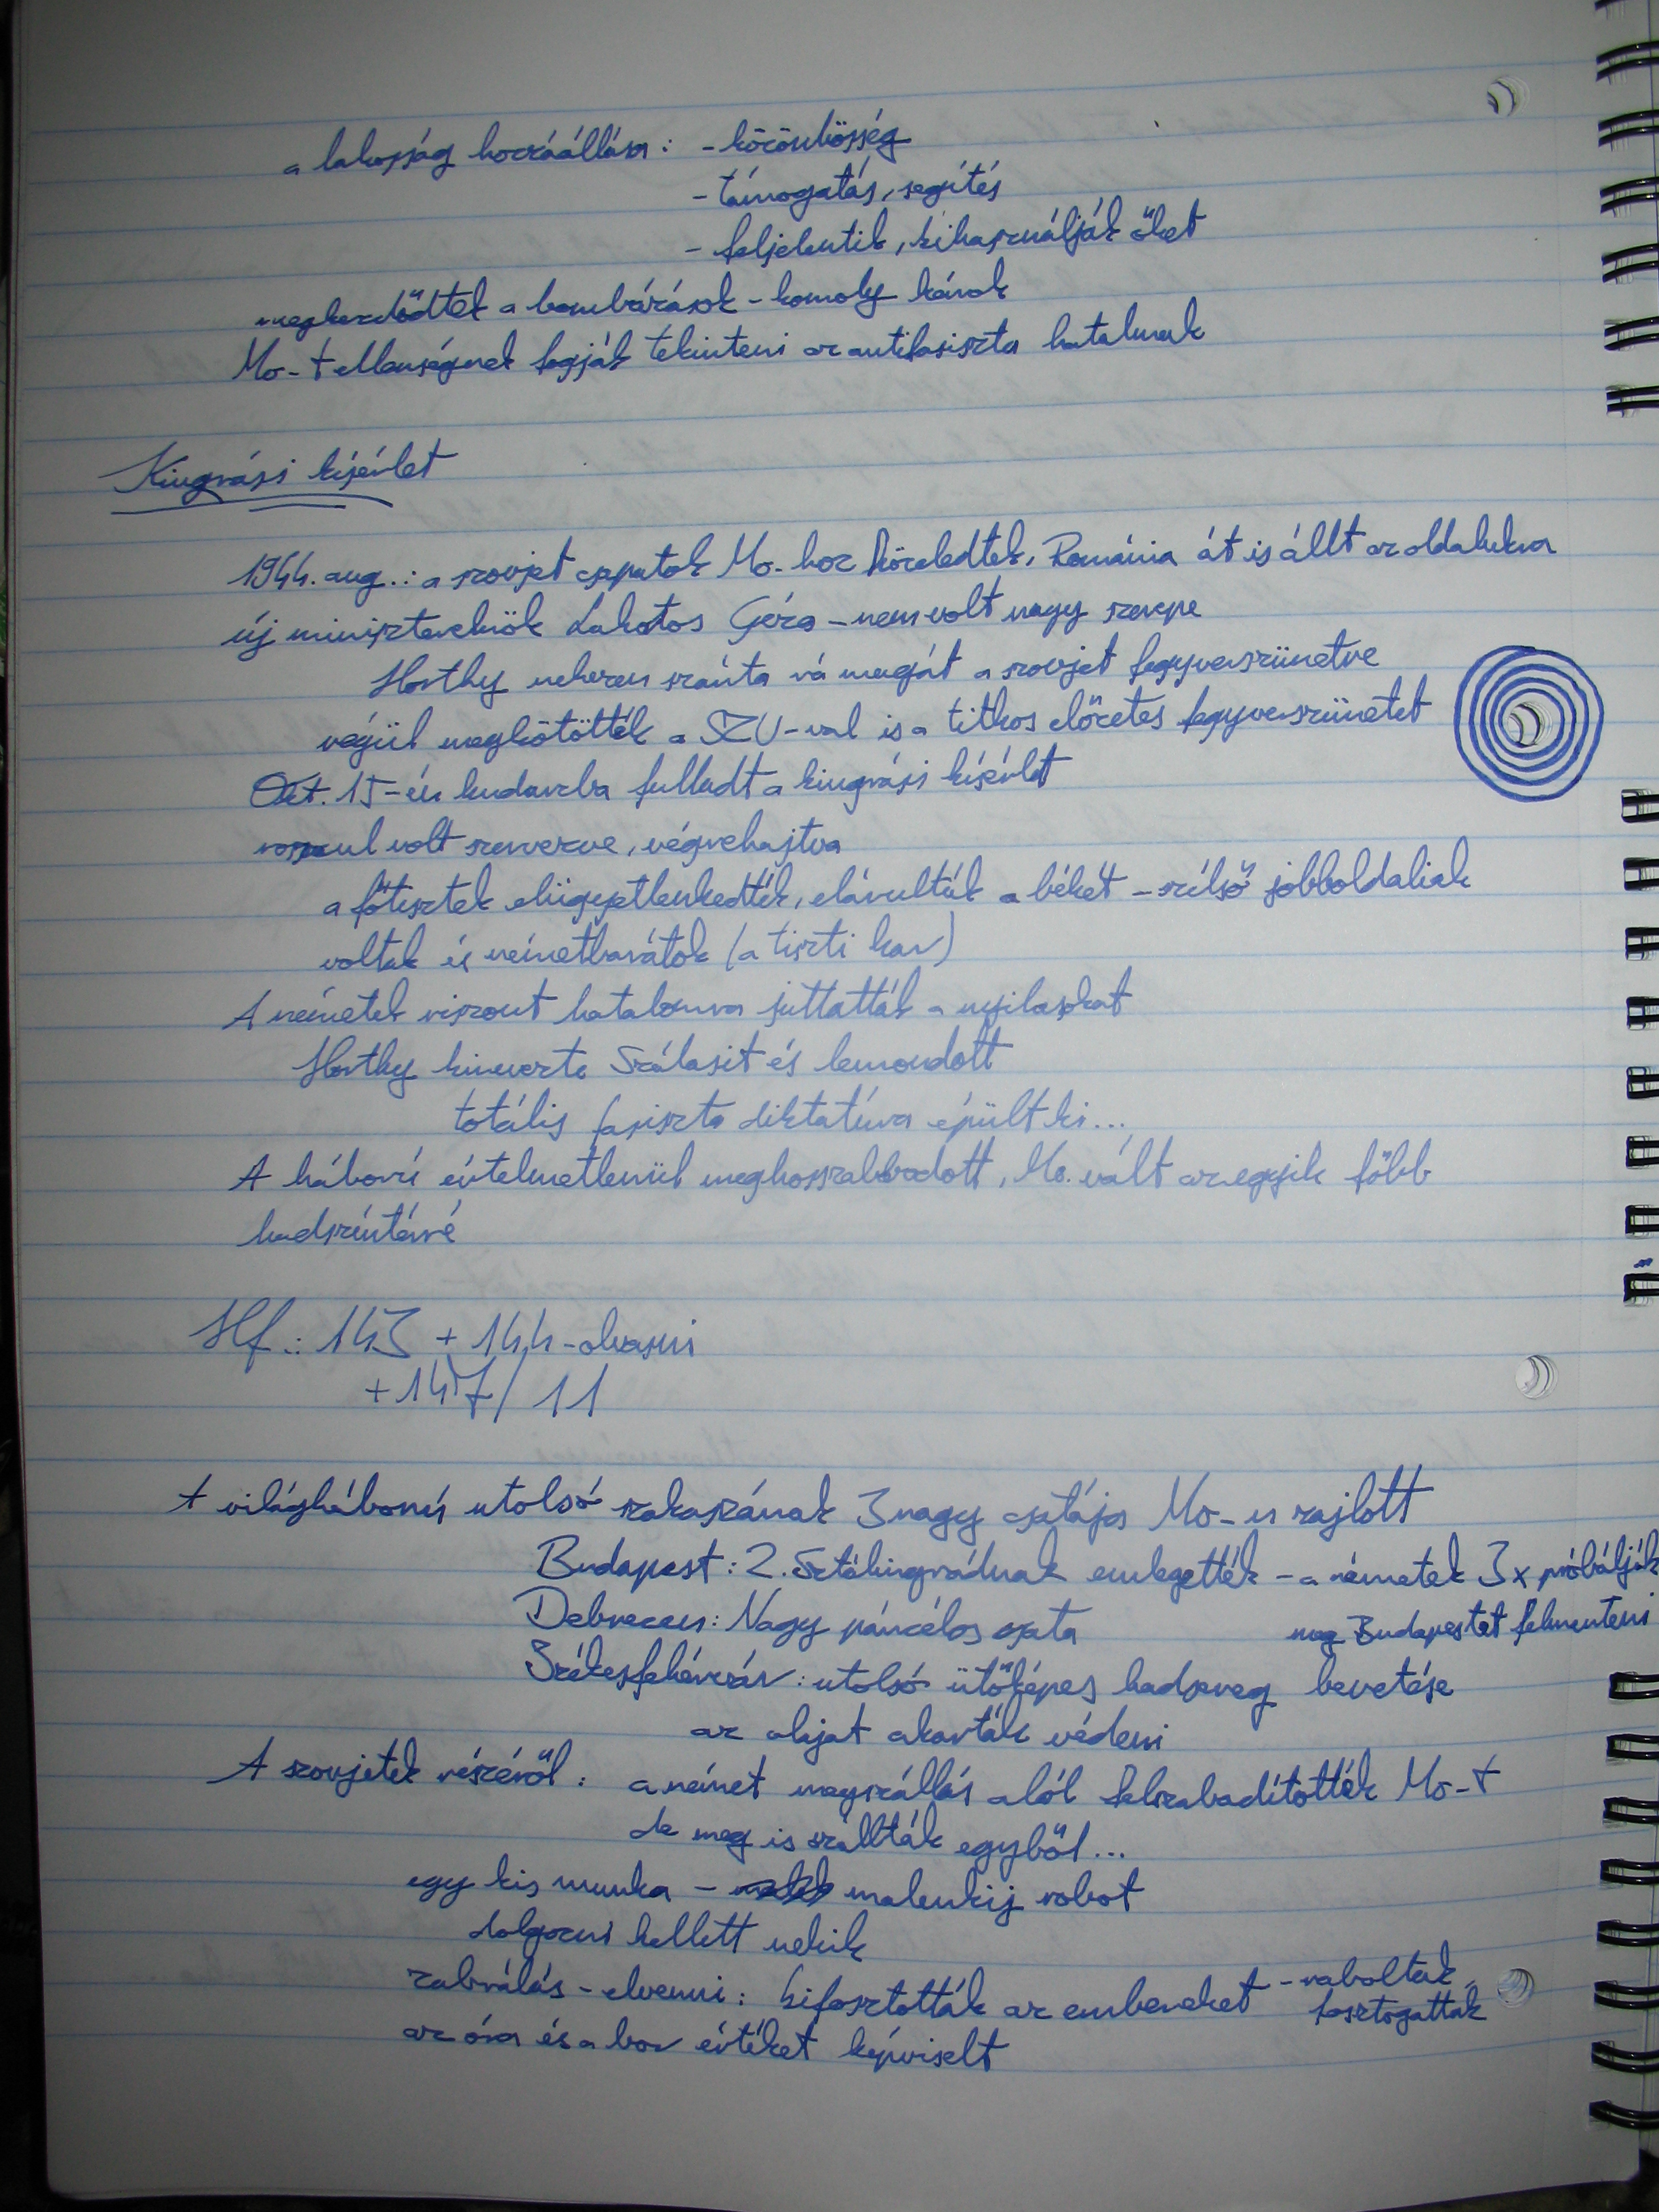 a lakosság hozzáállása: - közönbösség
- támogatás, segítés
- feljelentik, kihasználják őket
megkezdődtek a bombázások - komoly károk
Mo-t ellenségnek fogják tekinteni az antifasiszta hatalmak
Kiugrási kísérlet
1944. aug.: a szovjet csapatok Mo.-hoz közeledtek, Románia át is állt az oldalukra
új miniszterelnök Lakatos Géza - nem volt nagy szerepe
Horthy nehezen szánta rá magát a szovjet fegyverszünetre
végül megkötötték a SZU-val is a titkos előzetes fegyverszünetet
Okt. 15-én kudarcba fulladt a kiugrási kísérlet
rosszul volt szervezve, végrehajtva
a főtisztek elügyetlenkedték, elárulták a békét - szélső jobboldaliak
voltak és németbarátok (a tiszti kar)
A németek viszont hatalomra juttatták a nyilasokat
Horthy kinevezte Szálasit és lemondott
totális fasiszta diktatúra épült ki...
A háború értelmetlenül meghosszabbodott, Mo. vált az egyik főbb
hadszíntérré
Hf.: 143 + 144 - olvasni
+ 147/ 11
A világháború utolsó szakaszának 3 nagy csatája Mo-n zajlott
Budapest: 2. Sztálingrádnak emlegették - a németek 3x próbálják
meg Budapestet felmenteni
Debrecen: Nagy páncélos csata
Székesfehérvár: utolsó ütőképes hadsereg bevetése
az olajat akarták védeni
A szovjetek részéről: a német megszállás alól felszabadították Mo-t
de meg is szállták egyből...
egy kis munka - malenkij robot
dolgozni kellett nekik
zabrálás - elvenni: kifosztották az embereket - raboltak,
fosztogattak
az óra és a bor értéket képviselt